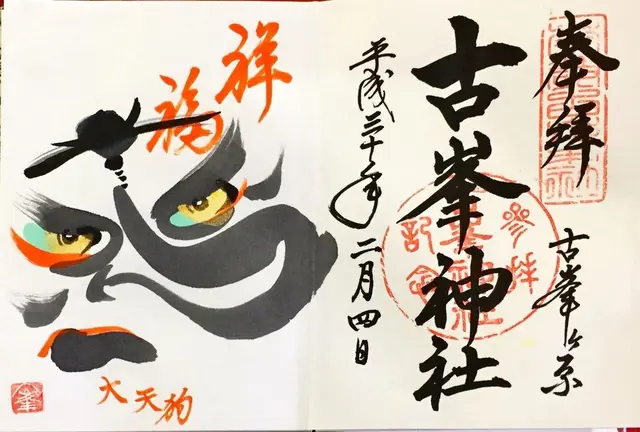 奉拝
古峯ヶ原
古峯神社
参拝
記念
平成三十年二月四日
祥
福
大天狗
峯